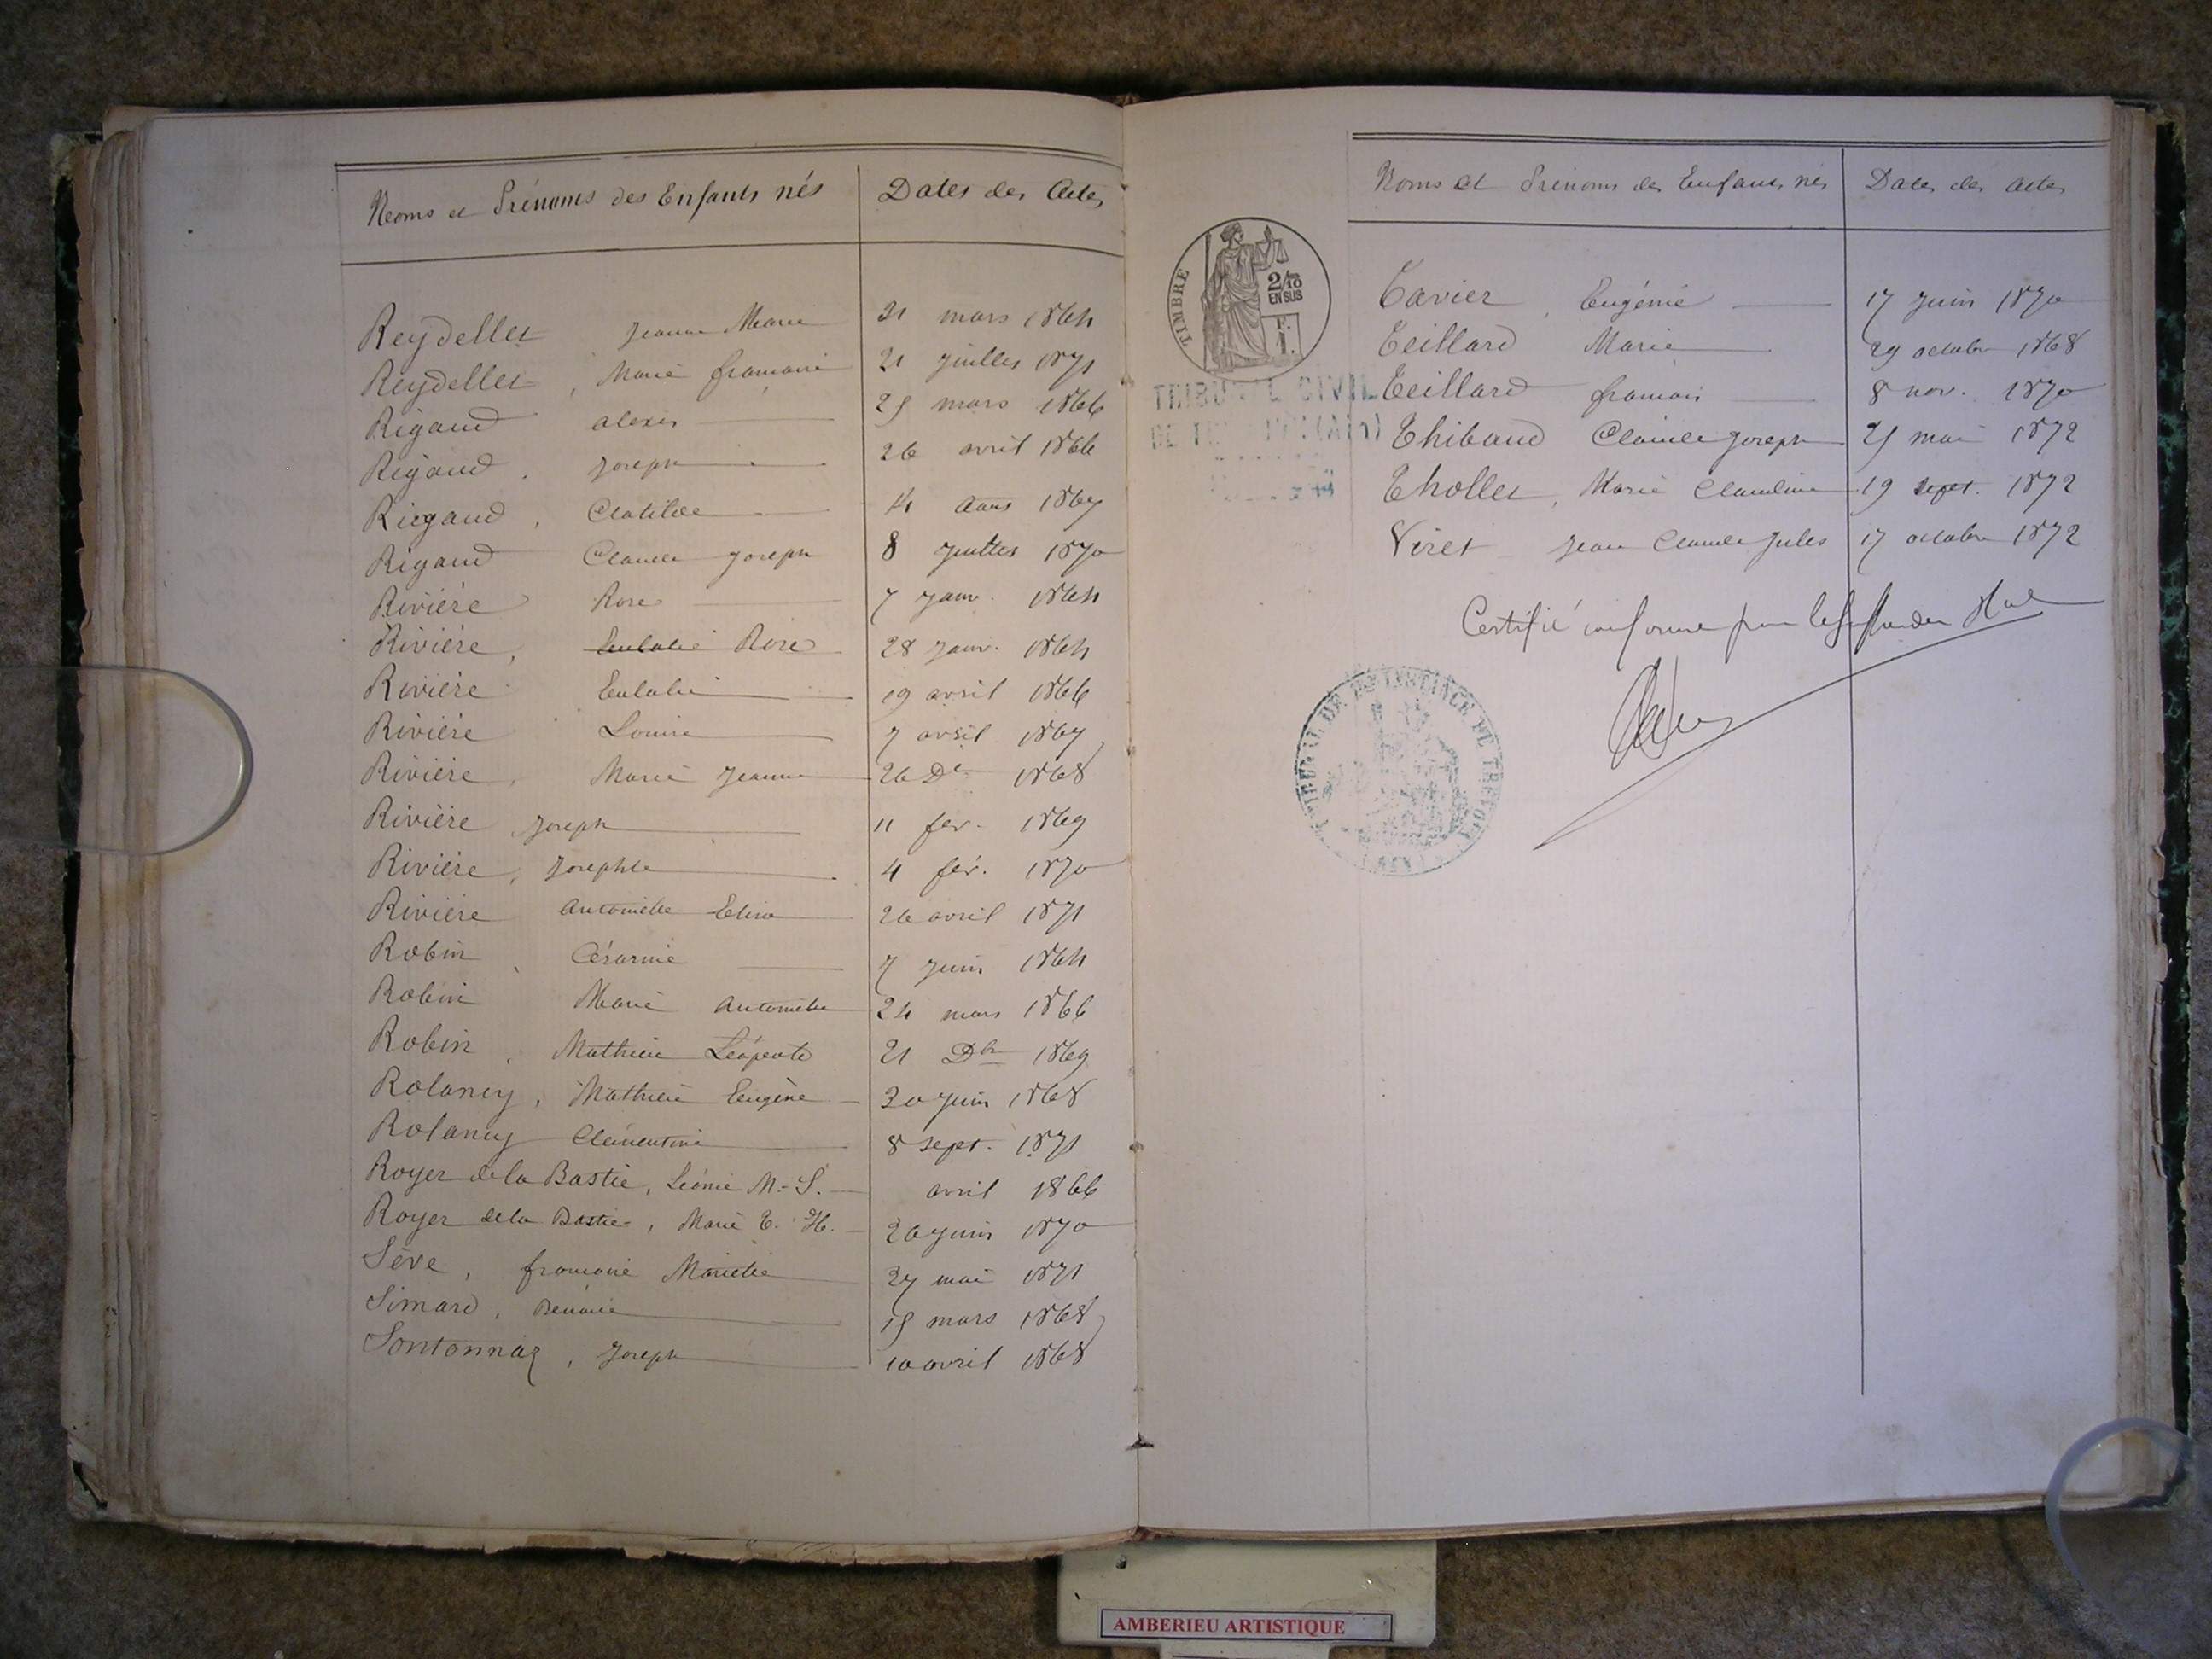 Noms et Prénoms des Enfants nés Dates des Actes
Reydellet Jeanne Marie 21 mars 1864
Reydellet, Marie françoise 21 juillet 1871
Rigaud alexis 25 mars 1866
Rigaud, Joseph 26 avril 1866
Rigaud, Clotilde 4 Aout 1867
Rigaud Claude Joseph 8 juillet 1870
Rivière Rose 7 Janv. 1864
Rivière, Eulalie Rose 28 Janv. 1864
Rivière Eulalie 19 avril 1866
Rivière Louise 7 avril 1867
Rivière, Marie Jeanne 26 Dbre 1868
Rivière Joseph 11 fev. 1869
Rivière, Josephte 4 fév. 1870
Rivière Antoinette Elisa 26 avril 1871
Robin, Césarine 7 Juin 1864
Robin Marie Antoinette 24 mars 1866
Robin, Mathieu 21 Dbre 1869
Rolancy, Mathieu Eugène 30 juin 1868
Rolancy Clémentine 8 sept. 1871
Royer de la Bastie, Léonie M.-S. avril 1866
Royer de la Bastie, Marie E. H. 20 juin 1870
Sève, françoise Mariette 27 mai 1871
Simard, Benoite 15 mars 1868
Sontonnaz, Joseph 10 avril 1868
TIMBRE
2/10
EN SUS
F.
1.
TRIBUNAL CIVIL
DE TREVOUX (Ain)
Noms et Prénoms des Enfants nés Dates des Actes
Tavier, Eugénie 17 Juin 1870
Teillard Marie 29 octobre 1868
Teillard françois 8 nov. 1870
Thibaud Claude Joseph 25 mai 1872
Thollet, Marie Claudine 19 sept. 1872
Viret Jean Claude Jules 17 octobre 1872
Certifié conforme par le
TRIBUNAL DE 1ERE INSTANCE DE TREVOUX
(AIN)
AMBERIEU ARTISTIQUE